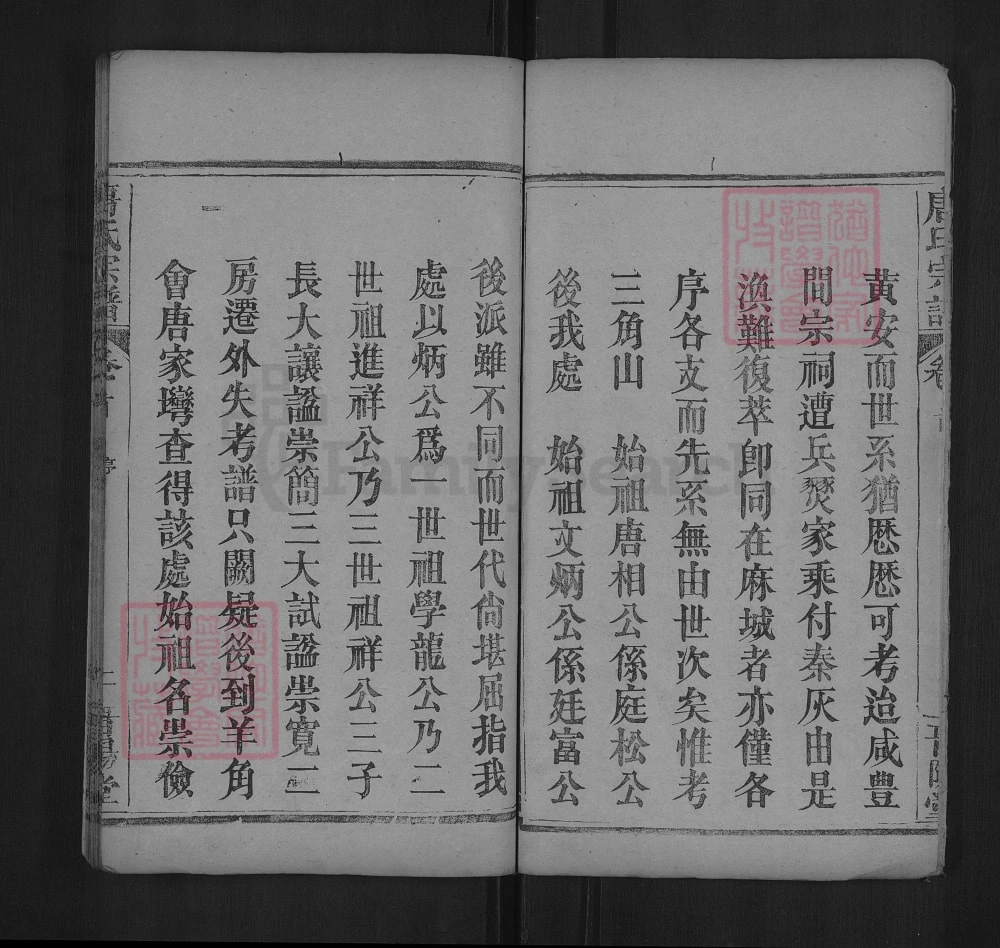 黃安而世系猶歷歷可考迨咸豐
間宗祠遭兵燹家乘付秦灰由是
渙難復萃卽同在麻城者亦僅各
序各支而先系無由世次矣惟考
三角山　始祖唐相公係庭松公
後我處　始祖文炳公係廷富公
後派雖不同而世代尙堪屈指我
處以炳公爲一世祖學龍公乃二
世祖進祥公乃三世祖祥公三子
長大讓諡崇簡三大試諡崇寬二
房遷外失考譜只闕疑後到羊角
會唐家塆查得該處始祖名崇儉
唐氏宗譜
卷首
序
晉陽堂
FamilySearch